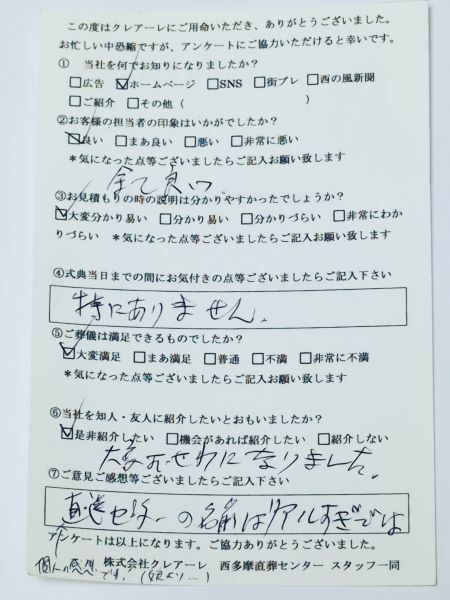 この度はクレアーレにご用命いただき、ありがとうございました。
お忙しい中恐縮ですが、アンケートにご協力いただけると幸いです。
① 当社を何でお知りになりましたか？
□広告 ☑ホームページ □SNS □街プレ □西の風新聞
□ご紹介 □その他（ ）
②お客様の担当者の印象はいかがでしたか？
☑良い □まあ良い □悪い □非常に悪い
＊気になった点等ございましたらご記入お願い致します
全て良い、
③お見積もりの時の説明は分かりやすかったでしょうか？
☑大変分かり易い □分かり易い □分かりづらい □非常にわか
りづらい ＊気になった点等ございましたらご記入お願い致します
④式典当日までの間にお気付きの点等ございましたらご記入下さい
特にありません。
⑤ご葬儀は満足できるものでしたか？
☑大変満足 □まあ満足 □普通 □不満 □非常に不満
＊気になった点等ございましたらご記入お願い致します
⑥当社を知人・友人に紹介したいとおもいましたか？
☑是非紹介したい □機会があれば紹介したい □紹介しない
大変おせわになりました。
⑦ご意見ご感想等ございましたらご記入下さい
直送センターの名前はリアルすぎでは
アンケートは以上になります。ご協力ありがとうございました。
個人の感想です。
株式会社クレアーレ 西多摩直葬センター スタッフ一同